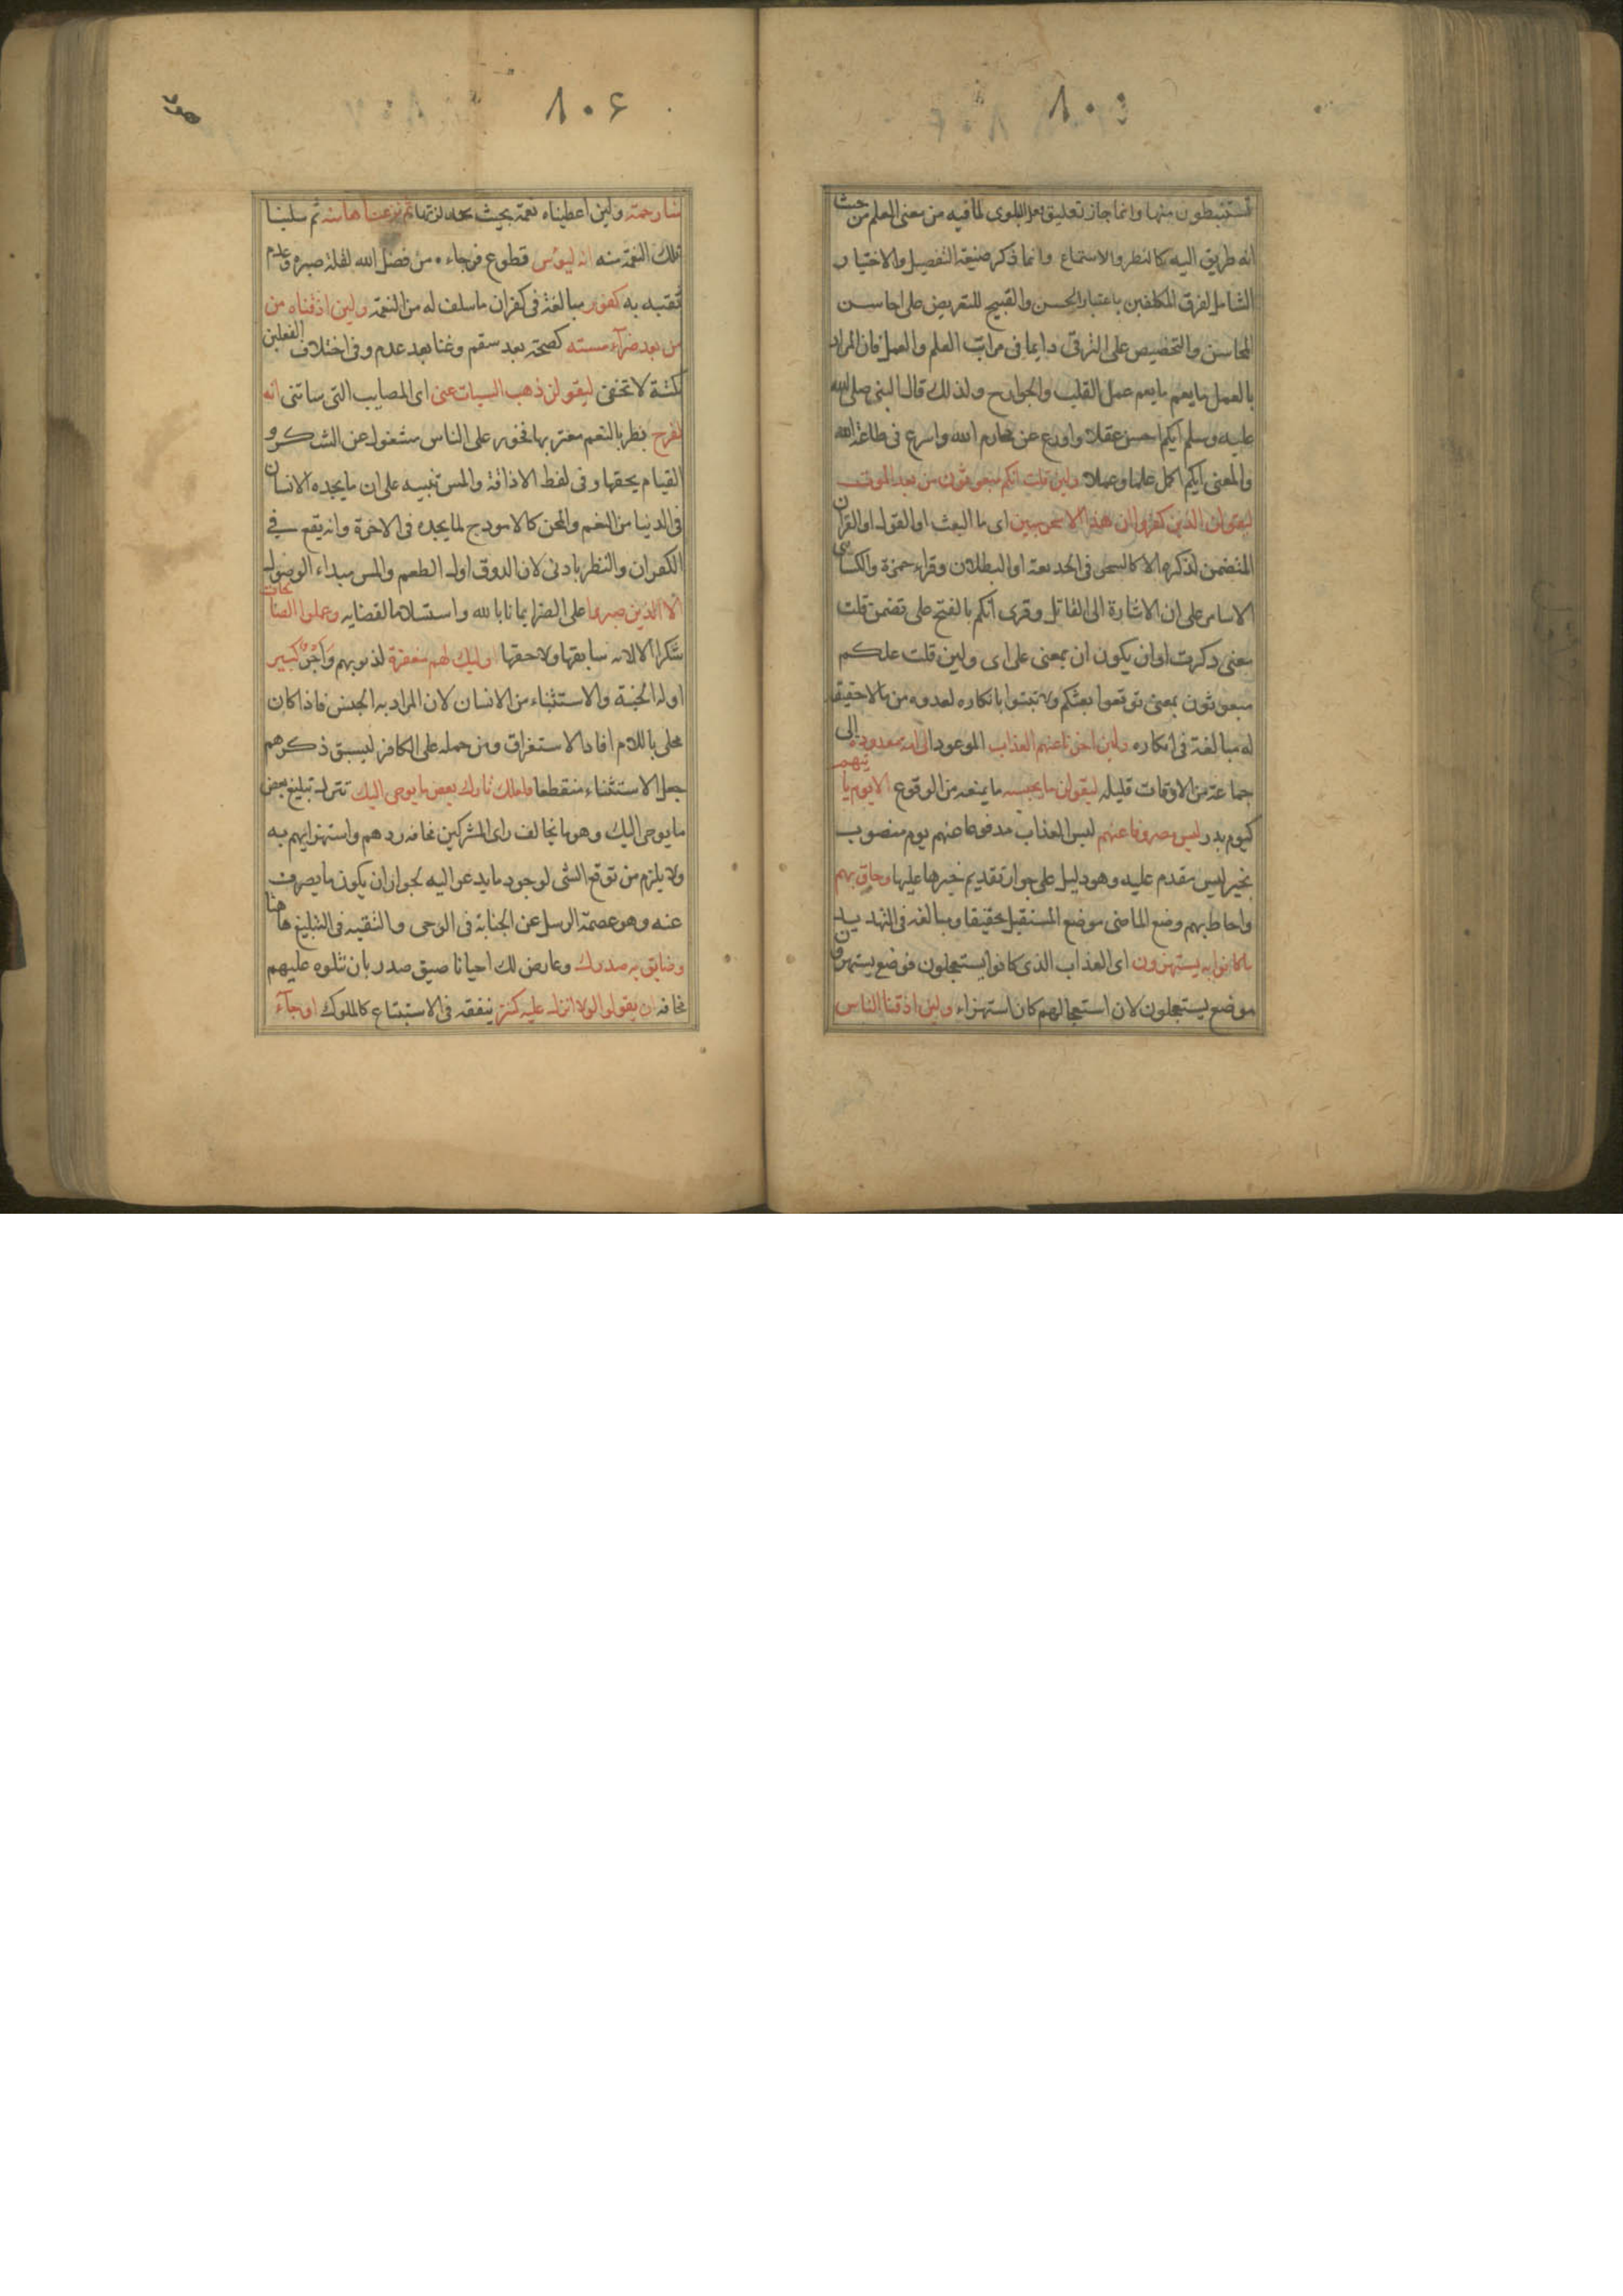 تستنبطون منها وانما جاز تعليق فعل البلوى لما فيه من معنى العلم من حيث
انه طريق اليه كالنظر والاستماع وانما ذكر صنيغة التفصيل والاختيار
الشامل لفرق المكلفين باعتبار الحسن والقبيح للتعريض على احاسن
المحاسن والتحضيص على الترقى دايما فى مراتب العلم والعمل فان المراد
بالعمل ما يعم ما يعم عمل القلب والجوارح ولذلك قال النبى صلى الله
عليه وسلم ايكم احسن عقلا واورع عن محارم الله واسرع فى طاعة الله
والمعنى ايكم اكمل علما وعملا ولين قلت انكم مبعوثون من بعد الموت
ليقولن الذين كفروا ان هذا الا سحر مبين اى ما البعث او القول او القران
المتضمن لذكره الا كالسحر فى الخديعة او البطلان وقراء حمزة والكسائى
الا ساحر على ان الاشارة الى القائل وقرى انكم بالفتح على تضمن قلت
معنى ذكرت او ان يكون ان بمعنى على اى ولين قلت علكم
مبعوثون بمعنى توقعوا بعثكم ولا تبتوا بانكاره لعدوه من مالا حقيقة
له مبالغة فى انكاره ولين اخرنا عنهم العذاب الموعود الى امة معدودة الى
جماعة من الاوقات قليله ليقولن ما يحبسه ما يمنعه من الوقوع الا يوم ياتيهم
كيوم بدر ليس مصروفا عنهم ليس العذاب مدفوعا عنهم يوم منصوب
بخير ليس مقدم عليه وهو دليل على جواز تقديم خبرها عليها وحاق بهم
واحاط بهم وضع الماضى موضع المستقبل تحقيقا ومبالغه فى التهديد
ما كانوا به يستهزون اى العذاب الذى كانوا يستعجلون فوضع يستهزون
موضع يستعجلون لان استعجالهم كان استهزاء ولين اذقنا الناس
٨٠٤
منا رحمة ولين اعطيناه نعمة بحيث يجد لذتها ثم نزعنا ها منه ثم سلبنا
تلك النعمة منه انه ليوس قطوع فرجاءه من فضل الله لقلة صبره وعدم
ثقته به كفور مبالغة فى كفران ما سلف له من النعمة ولين اذقناه من
من بعد ضراء مسته كصحة بعد سقم وغنا بعد عدم وفى اختلاف الفعلين
نكتة لا تخفى ليقولن ذهب السيات عنى اى المصايب التى ساتنى انه
لفرح بطر بالنعم مغتر بها فخور على الناس مشغول عن الشكر و
القيام بحقها وفى لفظ الاذاقة والمس تنبيه على ان ما يجده الانسان
فى الدنيا من النعم والمحن كالامودج لما يجده فى الاخرة وانه يقع فى
الكفران والبطر بادنى لان الذوق اول الطعم والمس مبداء الوصول
الا الذين صبروا على الضرا يمانا بالله واستسلاما لقضايه وعملوا الصالحات
شكرا لالائه سابقها ولاحقها اوليك لهم مغفرة لذنوبهم واجر كبير
اوله الجنة والاستثناء من الانسان لان المراد به الجنس فاذا كان
محلى باللام افاد الاستغراق ومن حمله على الكافر ليسبق ذكرهم
جعل الاستثناء منقطعا فلعلك تارك بعض ما يوحى اليك تترك تبليغ بعض
ما يوحى اليك وهو ما يخالف راى المشركين مخافه ردهم واستهزايهم به
ولا يلزم من توقع الشى لوجود ما يدعو اليه لجواز ان يكون ما يصرف
عنه وهو عصمة الرسل عن الخيانة فى الوحى والتقيه فى التبليغ هاهنا
وضايق به صدرك وعارض لك احيانا ضيق صدر بان تتلوه عليهم
مخافه ان يقولوا لولا انزل عليه كنز ينفقه فى الاستتباع كالملوك او جاء